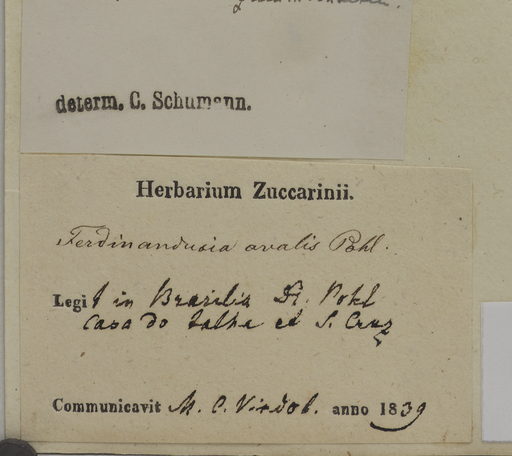 determ. C. Schumann.
Herbarium Zuccarinii.
Ferdinandusia ovalis Pohl.
Legit in Brasilia Dr. Pohl
Casa do Talha et S. Cruz
Communicavit M. C. Vindob. anno 1839